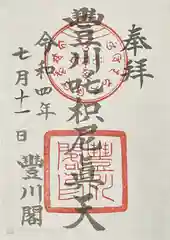 奉拝
豊川吒枳尼眞天
令和四年
七月十一日
豊川閣